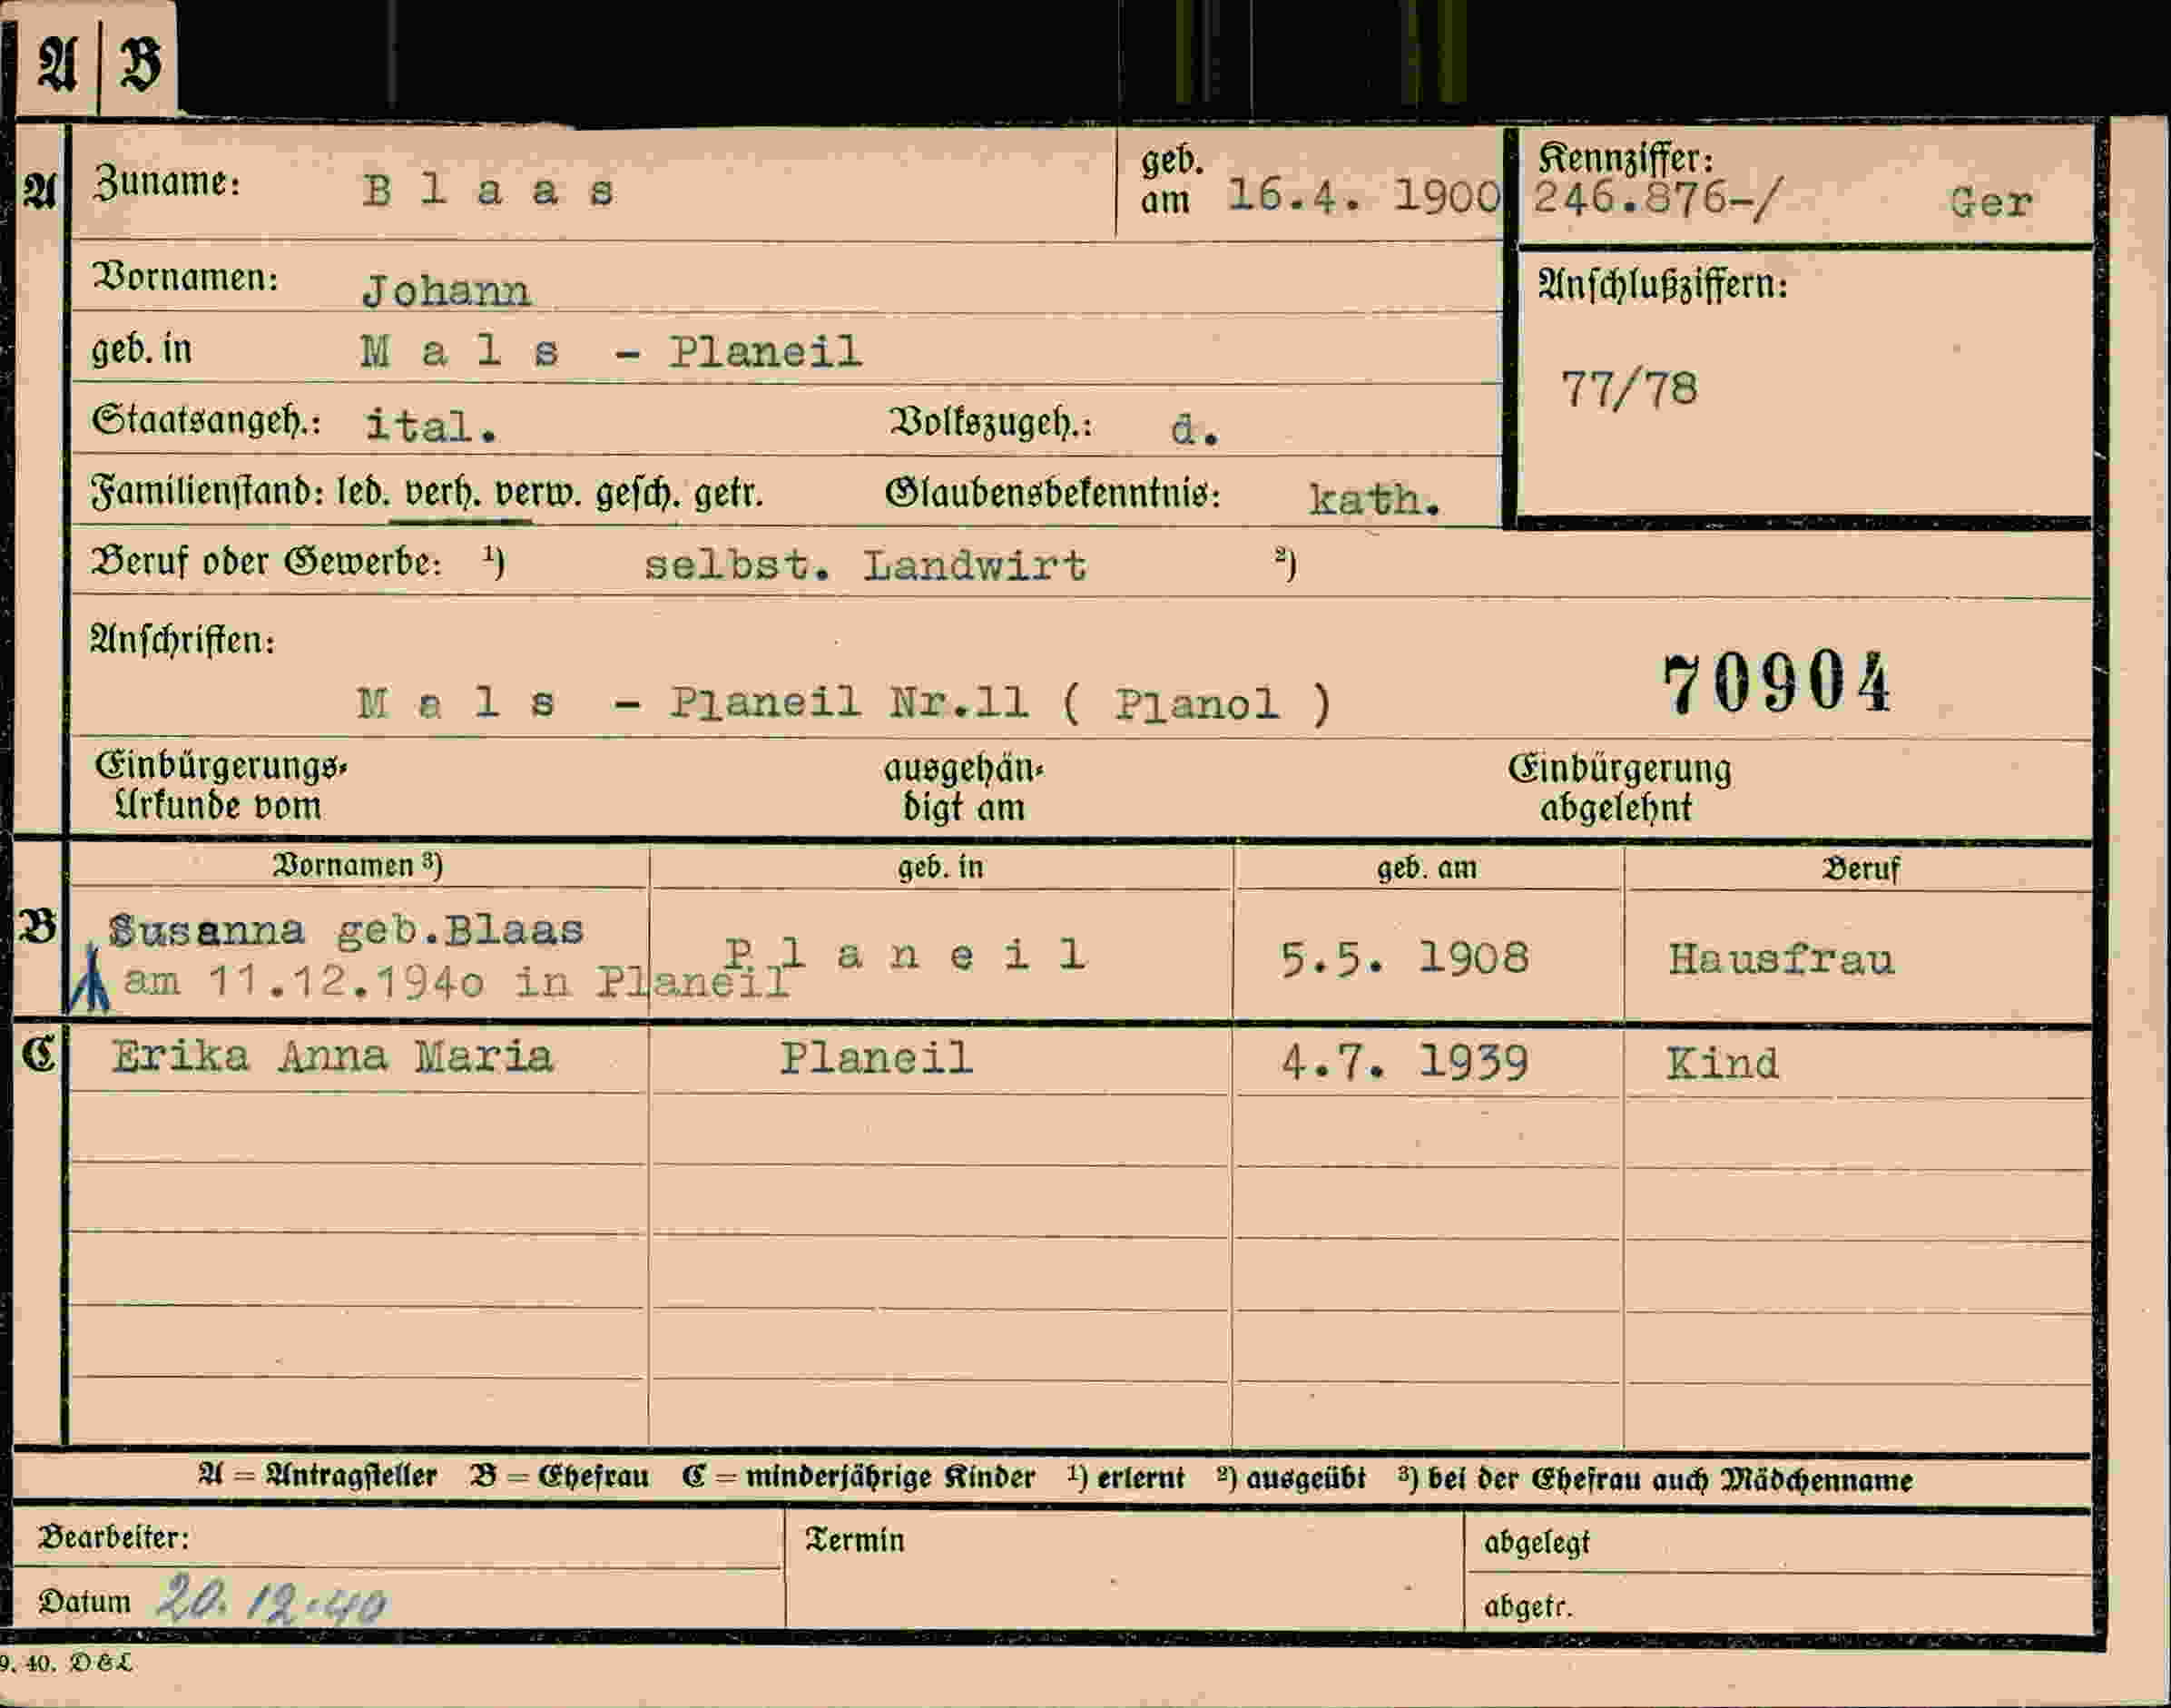 A B
A Zuname: B l a a s geb. am 16.4. 1900 Kennziffer: 246.876-/ Ger
Vornamen: Johann
Anschlußziffern:
geb. in M a l s - Planeil
77/78
Staatsangeh.: ital. Volkszugeh.: d.
Familienstand: led. verh. verw. gesch. getr. Glaubensbekenntnis: kath.
Beruf oder Gewerbe: ¹) selbst. Landwirt ²)
Anschriften:
M a l s - Planeil Nr.11 ( Planol ) 70904
Einbürgerungs- ausgehän- Einbürgerung
Urkunde vom digt am abgelehnt
Vornamen ³) geb. in geb. am Beruf
B Susanna geb.Blaas P l a n e i l 5.5. 1908 Hausfrau
am 11.12.194o in Planeil
C Erika Anna Maria Planeil 4.7. 1939 Kind
A = Antragsteller B = Ehefrau C = minderjährige Kinder ¹) erlernt ²) ausgeübt ³) bei der Ehefrau auch Mädchenname
Bearbeiter: Termin abgelegt
Datum 20.12.40 abgetr.
9. 40. D&L